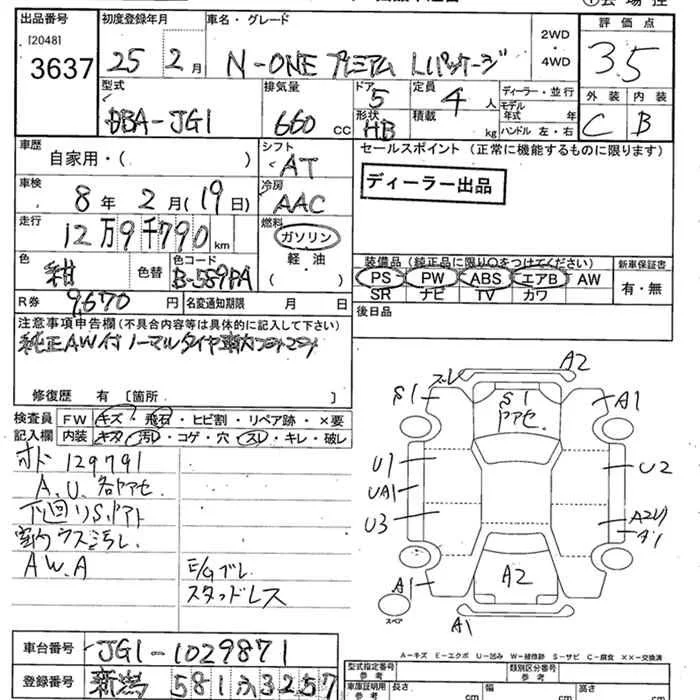 出品番号
[2048]
3637
初度登録年月
25 2月
車名・グレード
N-ONE プレミアム Lパッケージ
2WD
・
4WD
評価点
3.5
外装 内装
C B
型式
DBA-JG1
排気量
660 cc
ドア
5
形状
HB
定員
4 人
積載
kg
ディーラー・並行
モデル
年式 年
ハンドル 左・右
車歴
自家用・( )
シフト
AT
車検
8年 2月(19日)
冷房
AAC
走行
12万9千790 km
燃料
ガソリン
軽油
( )
色
紺
色替
色コード
B-589PA
R券 9,670 円
名変通知期限 月 日
セールスポイント (正常に機能するものに限ります)
ディーラー出品
装備品 (純正品に限り○をつけてください)
PS PW ABS エアB AW
SR ナビ TV カワ
新車保証書
有・無
後日品
注意事項申告欄(不具合内容等は具体的に記入して下さい)
純正AW付ノーマルタイヤ
修復歴 有 [箇所 ]
検査員 FW キズ・飛石・ヒビ割・リペア跡・×要
記入欄 内装 キズ・汚レ・コゲ・穴・スレ・キレ・破レ
オド 129791
A.U. 各ヤアセ
下回りS.ヤアト
室内ウス汚レ
A.W.A
E/Gブレ
スタッドレス
A2
スレ
S1
S1
ヤアセ
A1
U1
UA1
U2
U3
A2U
A1
A1
A2
A1
スペア
A-キズ E-エクボ U-凹み W-補修跡 S-サビ C-腐食 ××-交換済
車台番号 JG1-1029871
登録番号 新潟 581 ふ 3257
型式指定番号
参考
類別区分番号
参考
車庫証明用
参考
長さ
cm
幅
cm
高さ
cm